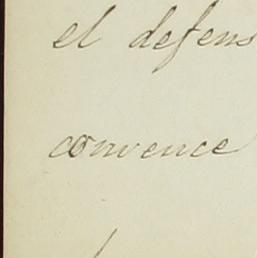 el defens
convence